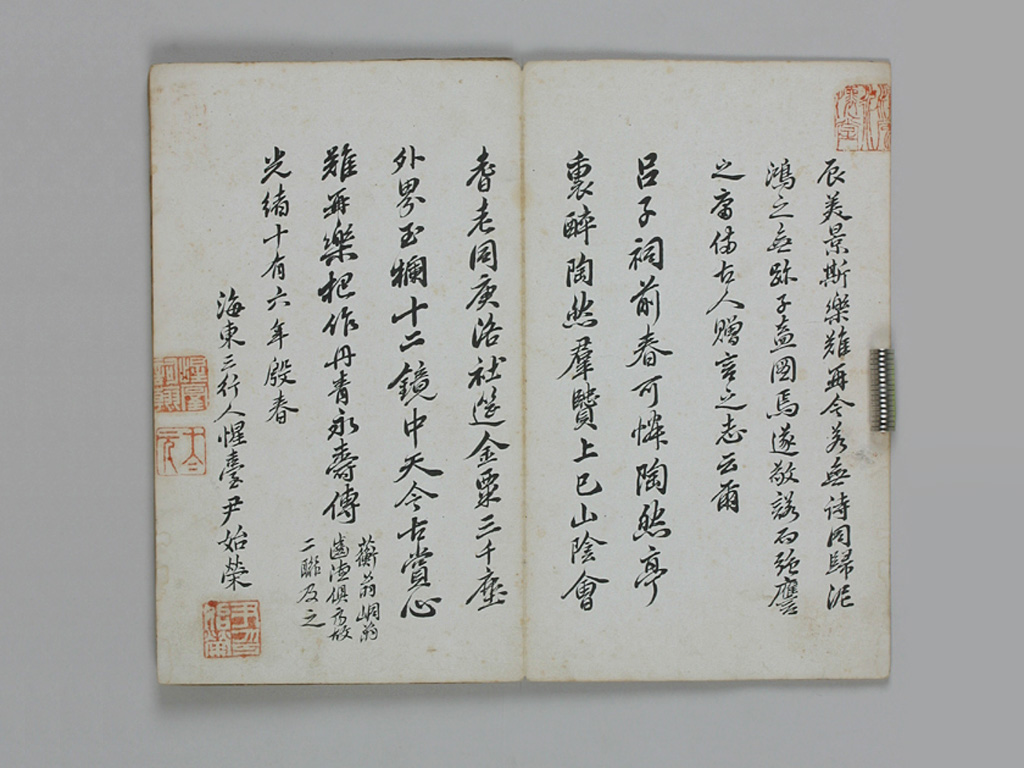 辰美景斯樂難再今若無詩同歸泥
鴻之無跡子盍圖焉遂敬諾而强應
之庸備古人贈言之志云爾
呂子祠前春可憐陶然亭
裏醉陶然羣賢上巳山陰會
耆老同庚洛社筵金粟三千塵
外界玉欄十二鏡中天今古賞心
難再樂把作丹青永壽傳
蘅翁峒翁
齒德俱高故
二聯及之
光緖十有六年殷春
海東三行人惺臺尹始榮
尹始榮印